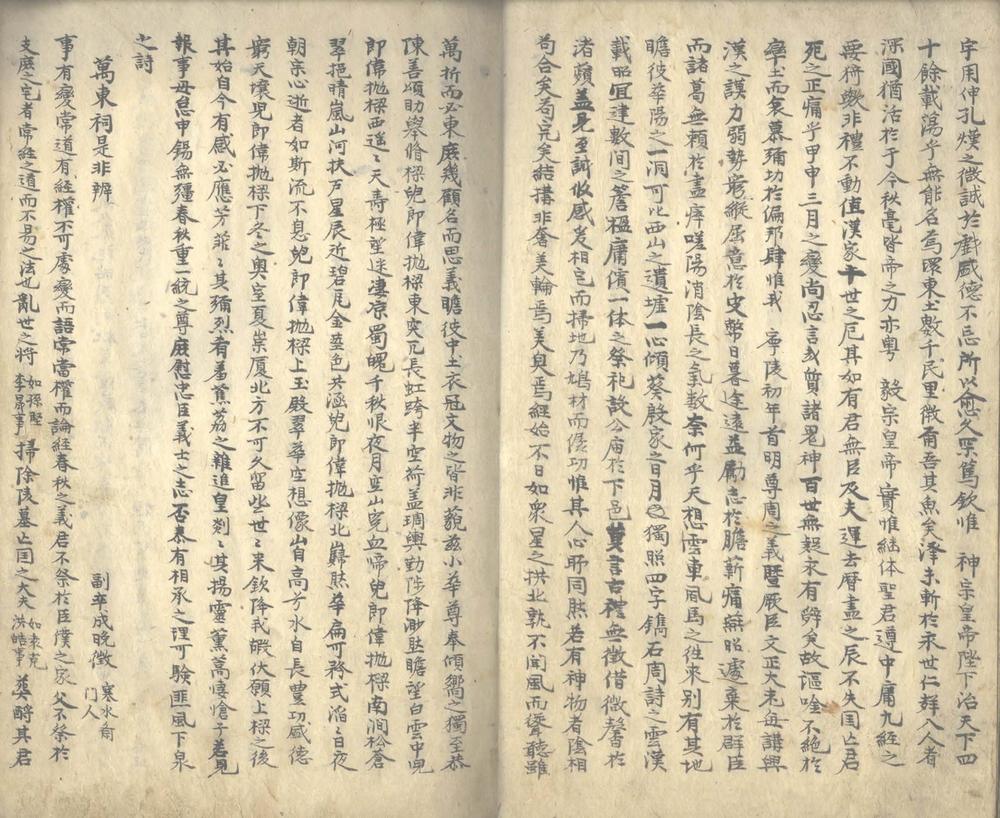 宇用伸孔熯之微誠於戱盛德不忘所以愈久而罙篤欽惟 神宗皇帝陛下治天下四
十餘載蕩乎無能名焉環東土數千民里微爾吾其魚矣澤未斬於永世仁群入人者
深國猶活於于今秋毫皆帝之力亦粤 毅宗皇帝實惟継体聖君遵中庸九経之
要符數非禮不動值漢家十世之厄其如有君無臣及夫運去曆盡之辰不失国亡君
死之正痛乎甲申三月之變尚忍言哉質諸鬼神百世無疑永有辭矣故謳唫不絶於
率土而哀慕彌功於偏邦肆惟我 寧陵初年首明尊周之義曁厥臣文正大老每講興
漢之謨力弱勢窮縱屈意於皮幣日暮途遠益勵志於膽薪痛無照遽棄於群臣
而諸葛無賴於盡瘁嗟陽消陰長之氣數奈何乎天想雲車風馬之徃来別有其地
瞻彼華陽之一洞可比西山之遺墟一心傾葵殷家之日月之獨照四字鐫石周詩之雲漢
載昭宜建數間之簷楹庸儐一体之祭祀設公廟於下邑蔑言古禮無徵借微馨於
渚蘋盖見至誠攸感爰相宅而掃地乃鳩材而僝功惟其人心所同然若有神物者陰相
苟合矣苟完矣結搆非奢美輪焉美奐焉経始不日如衆星之拱北孰不聞風而聳聽雖
萬折而必東庶幾顧名而思義瞻彼中土衣冠文物之皆非藐玆小華尊奉傾嚮之獨至恭
陳善頌助舉脩樑兒郎偉抛樑東突兀長虹跨半空荷盖琱輿勤陟降渺然瞻望白雲中兒
郎偉抛樑西遥遥天壽極望迷凄凉蜀魄千秋恨夜月空山寃血啼兒郎偉抛樑南澗松含
翠挹晴嵐山河扶户星辰近碧瓦金莖色共涵兒郎偉抛樑北巋然華扁可矜式滔滔日夜
朝宗心逝者如斯流不息兒郎偉抛樑上玉殿翠華空想像山自高兮水自長豊功盛德
窮天壤兒郎偉抛樑下冬之奥室夏崇厦北方不可久留些世世来欽降我嘏伏願上樑之後
其始自今有感必應芳菲菲其彌烈肴羞蕉荔之雜進皇剡剡其揚靈薰蒿悽愴予若見
報事毋怠申錫無疆春秋重一統之尊庶慰忠臣義士之志否泰有相承之理可驗匪風下泉
之詩
萬東祠是非辨
副率成晩徵 寒水齋門人
事有變常道有経權不可處變而語常當權而論経春秋之義君不祭於臣僕之家父不祭於
支庶之宅者常経之道而不易之法也亂世之将 如孫堅李晟事 掃除陵墓亡国之大夫 如袁克洪皓事 奠酹其君